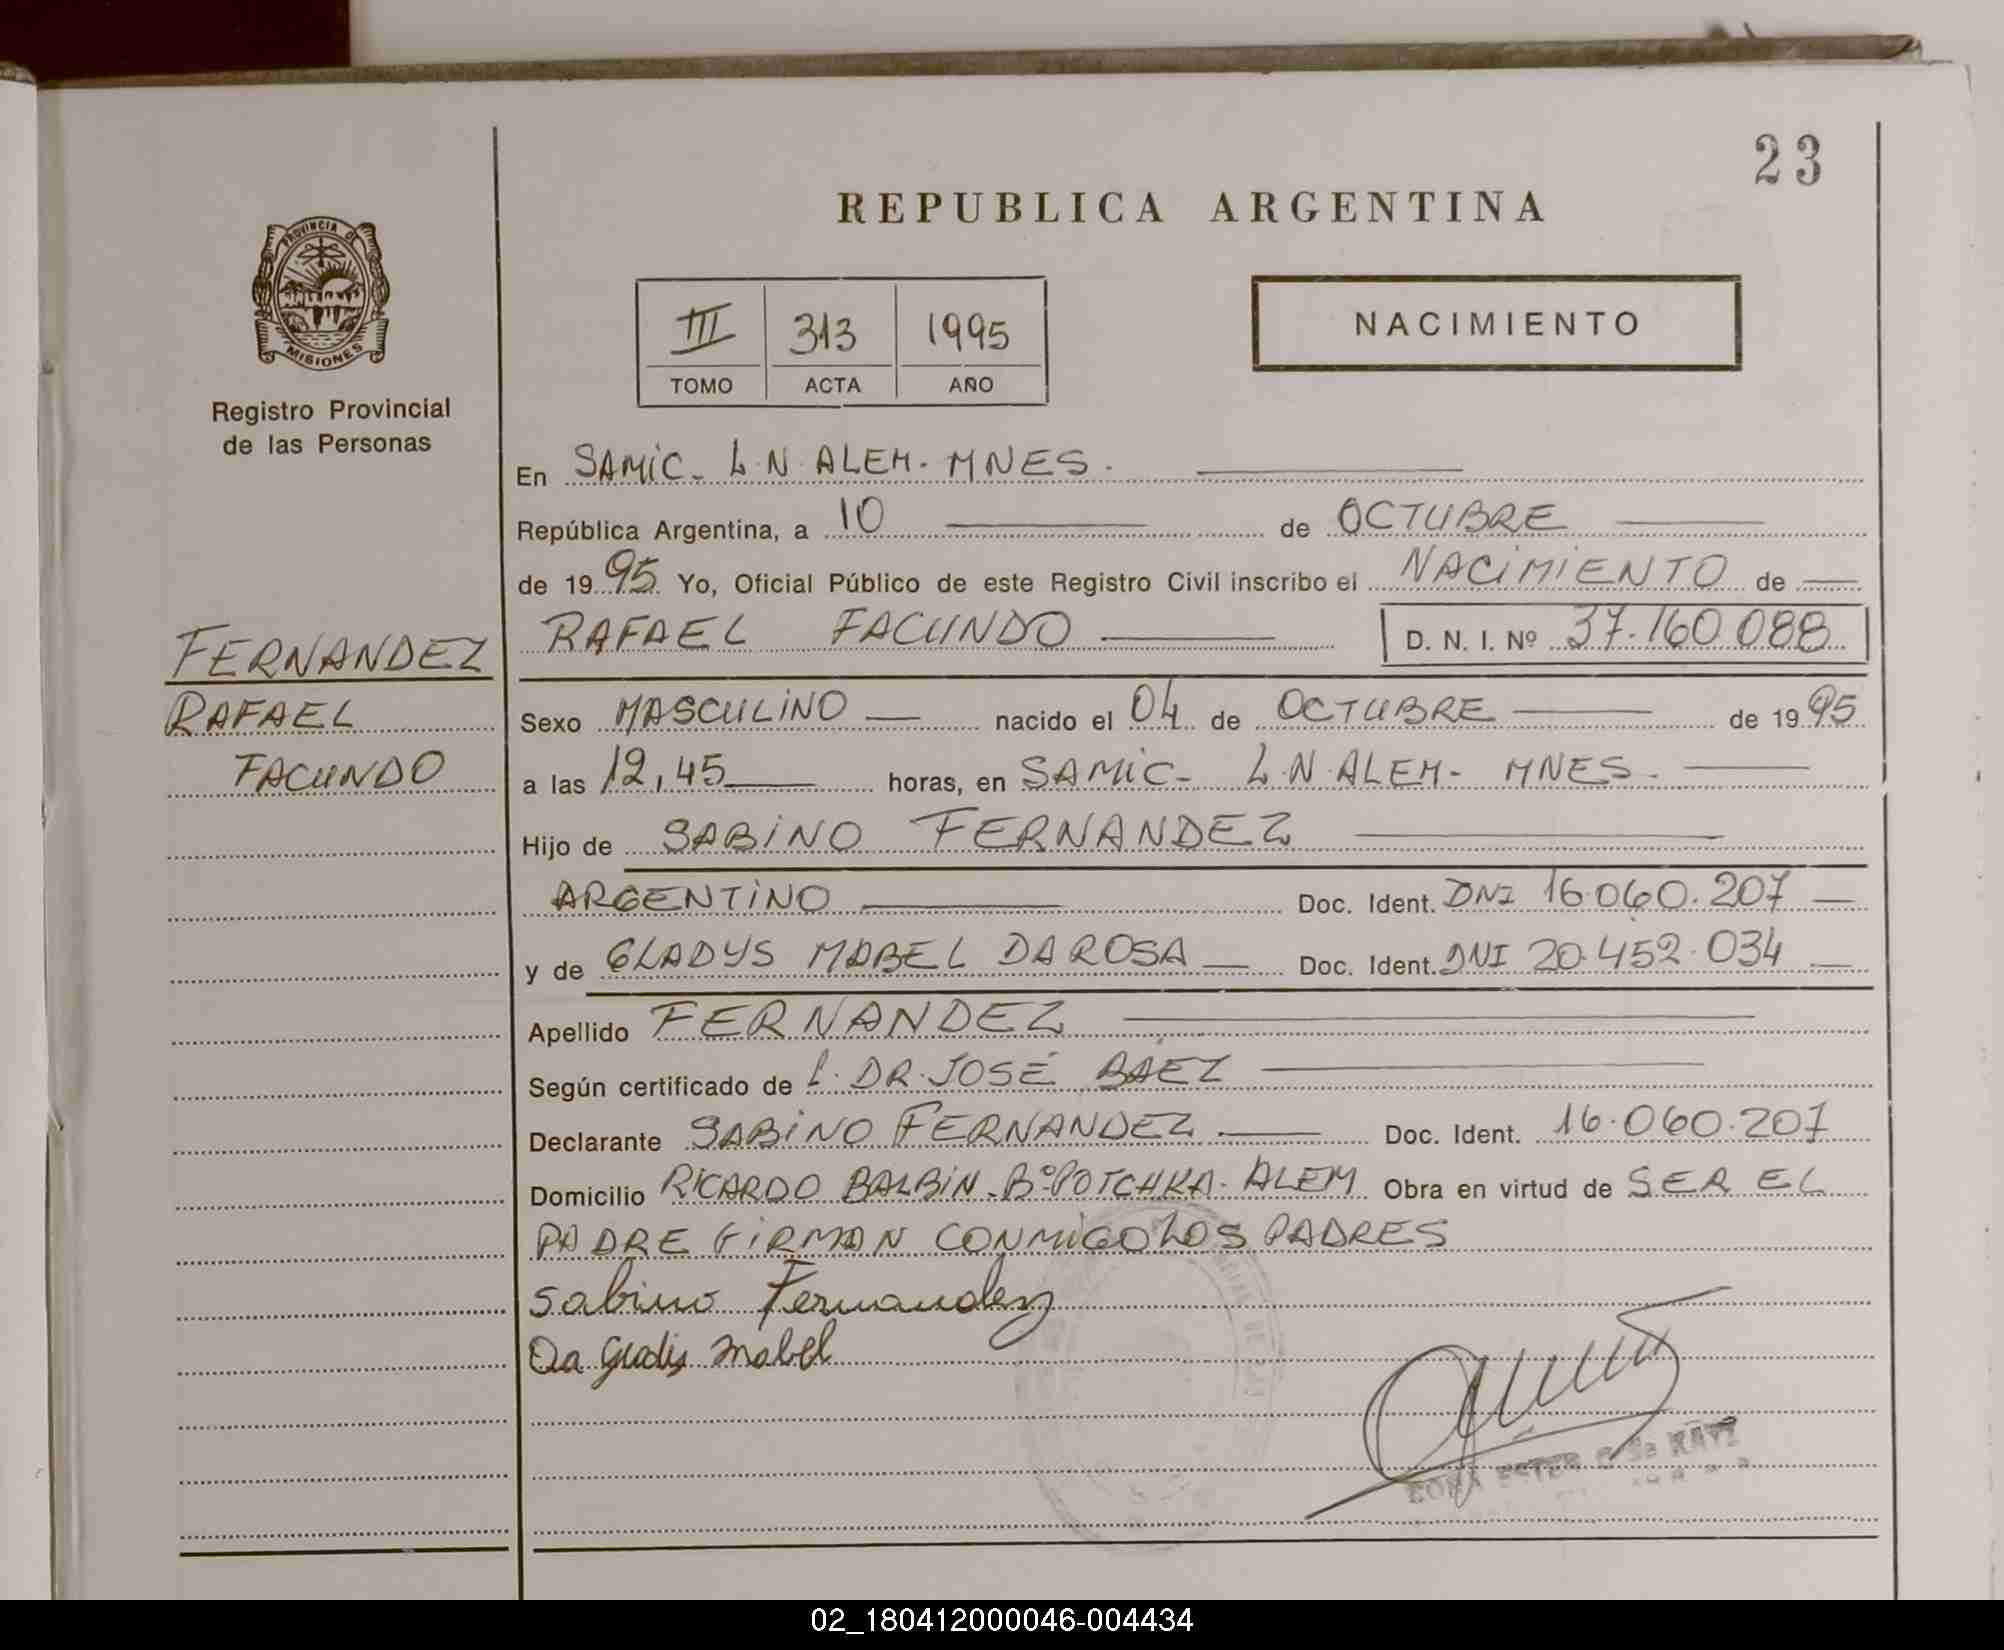 23
REPUBLICA ARGENTINA
PROVINCIA DE
MISIONES
Registro Provincial
de las Personas
III 313 1995
TOMO ACTA AÑO
NACIMIENTO
En SAMIC- L.N.ALEM-MNES.
República Argentina, a 10 de OCTUBRE
de 1995 Yo, Oficial Público de este Registro Civil inscribo el NACIMIENTO de
RAFAEL FACUNDO D. N. I. Nº 37.160.088
FERNANDEZ
RAFAEL
FACUNDO
Sexo MASCULINO nacido el 04 de OCTUBRE de 1995
a las 12,45 horas, en SAMIC- L.N.ALEM- MNES.
Hijo de SABINO FERNANDEZ
ARGENTINO Doc. Ident. DNI 16.060.207
y de GLADYS MABEL DA ROSA Doc. Ident. DNI 20.452.034
Apellido FERNANDEZ
Según certificado de DR. JOSÉ BAEZ
Declarante SABINO FERNANDEZ Doc. Ident. 16.060.207
Domicilio RICARDO BALBIN-BºPOTCHKA-ALEM Obra en virtud de SER EL
PADRE FIRMAN CONMIGO LOS PADRES
Sabino Fernandez
Mabel
02_180412000046-004434